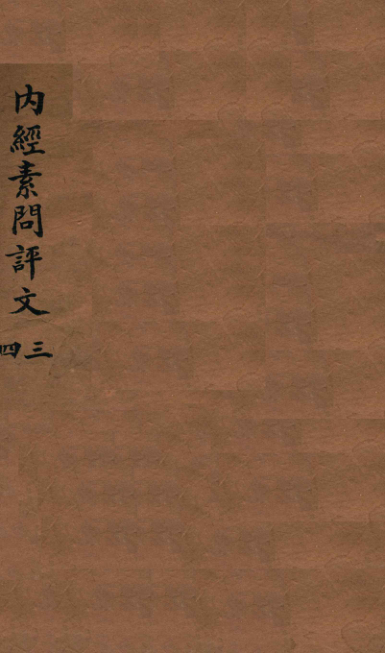 內經素問評文
三四